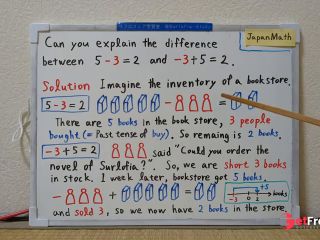 JapanMath
Can you explain the difference
between 5-3=2 and -3+5=2.
Solution Imagine the inventory of a bookstore.
5-3=2 - =
There are 5 books in the book store, 3 people
bought (= Past tense of buy). So remaing is 2 books.
-3+5=2 said "Could you order the
novel of Surlofia?" So, we are short 3 books
in stock. 1 week later, bookstore got 5 books,
+5
-3 0 2 books
- + =
and sold 3, so we now have 2 books in the store.